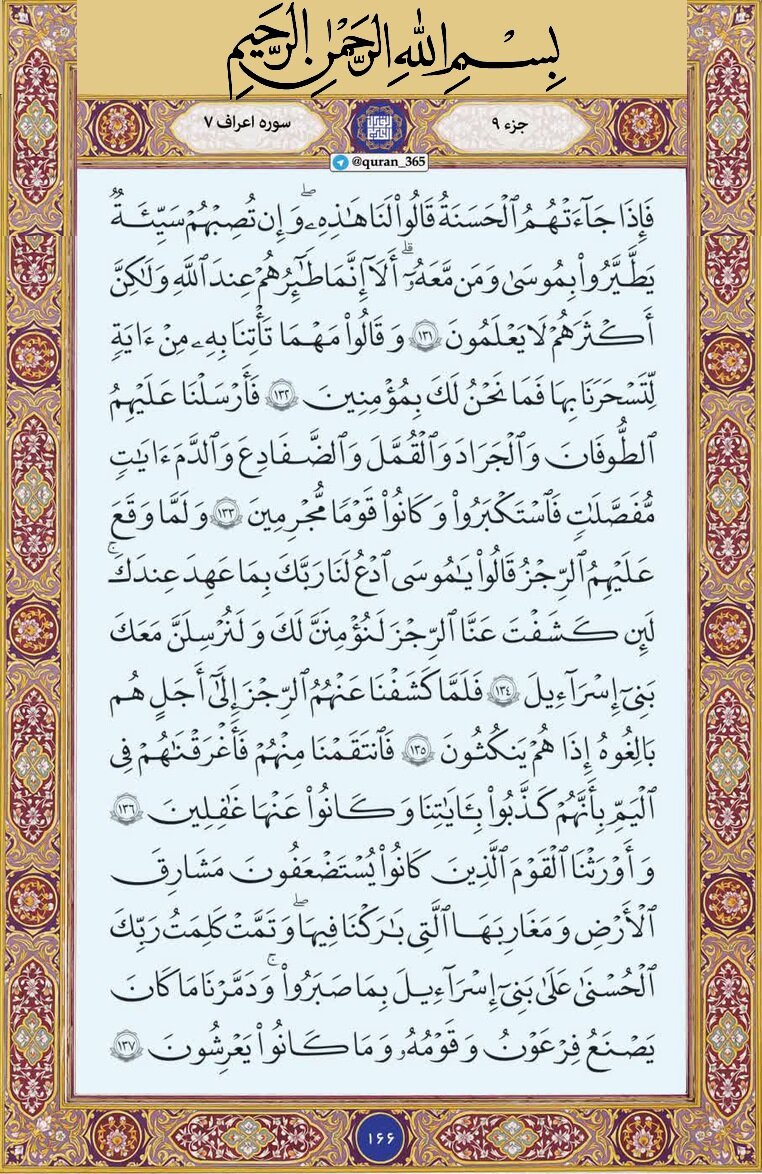 بِسْمِ اللهِ الرَّحْمٰنِ الرَّحِیمِ
جزء ۹
سوره اعراف ۷
@quran_365
فَإِذَا جَآءَتْهُمُ ٱلْحَسَنَةُ قَالُوا۟ لَنَا هَٰذِهِۦ ۖ وَإِن تُصِبْهُمْ سَيِّئَةٌ
يَطَّيَّرُوا۟ بِمُوسَىٰ وَمَن مَّعَهُۥٓ ۗ أَلَآ إِنَّمَا طَٰٓئِرُهُمْ عِندَ ٱللَّهِ وَلَٰكِنَّ
أَكْثَرَهُمْ لَا يَعْلَمُونَ ١٣١ وَقَالُوا۟ مَهْمَا تَأْتِنَا بِهِۦ مِنْ ءَايَةٍ
لِّتَسْحَرَنَا بِهَا فَمَا نَحْنُ لَكَ بِمُؤْمِنِينَ ١٣٢ فَأَرْسَلْنَا عَلَيْهِمُ
ٱلطُّوفَانَ وَٱلْجَرَادَ وَٱلْقُمَّلَ وَٱلضَّفَادِعَ وَٱلدَّمَ ءَايَٰتٍ
مُّفَصَّلَٰتٍ فَٱسْتَكْبَرُوا۟ وَكَانُوا۟ قَوْمًا مُّجْرِمِينَ ١٣٣ وَلَمَّا وَقَعَ
عَلَيْهِمُ ٱلرِّجْزُ قَالُوا۟ يَٰمُوسَى ٱدْعُ لَنَا رَبَّكَ بِمَا عَهِدَ عِندَكَ ۖ
لَئِن كَشَفْتَ عَنَّا ٱلرِّجْزَ لَنُؤْمِنَنَّ لَكَ وَلَنُرْسِلَنَّ مَعَكَ
بَنِىٓ إِسْرَٰٓءِيلَ ١٣٤ فَلَمَّا كَشَفْنَا عَنْهُمُ ٱلرِّجْزَ إِلَىٰٓ أَجَلٍ هُم
بَٰلِغُوهُ إِذَا هُمْ يَنكُثُونَ ١٣٥ فَٱنتَقَمْنَا مِنْهُمْ فَأَغْرَقْنَٰهُمْ فِى
ٱلْيَمِّ بِأَنَّهُمْ كَذَّبُوا۟ بِـَٔايَٰتِنَا وَكَانُوا۟ عَنْهَا غَٰفِلِينَ ١٣٦
وَأَوْرَثْنَا ٱلْقَوْمَ ٱلَّذِينَ كَانُوا۟ يُسْتَضْعَفُونَ مَشَٰرِقَ
ٱلْأَرْضِ وَمَغَٰرِبَهَا ٱلَّتِى بَٰرَكْنَا فِيهَا ۖ وَتَمَّتْ كَلِمَتُ رَبِّكَ
ٱلْحُسْنَىٰ عَلَىٰ بَنِىٓ إِسْرَٰٓءِيلَ بِمَا صَبَرُوا۟ ۖ وَدَمَّرْنَا مَا كَانَ
يَصْنَعُ فِرْعَوْنُ وَقَوْمُهُۥ وَمَا كَانُوا۟ يَعْرِشُونَ ١٣٧
۱۶۶